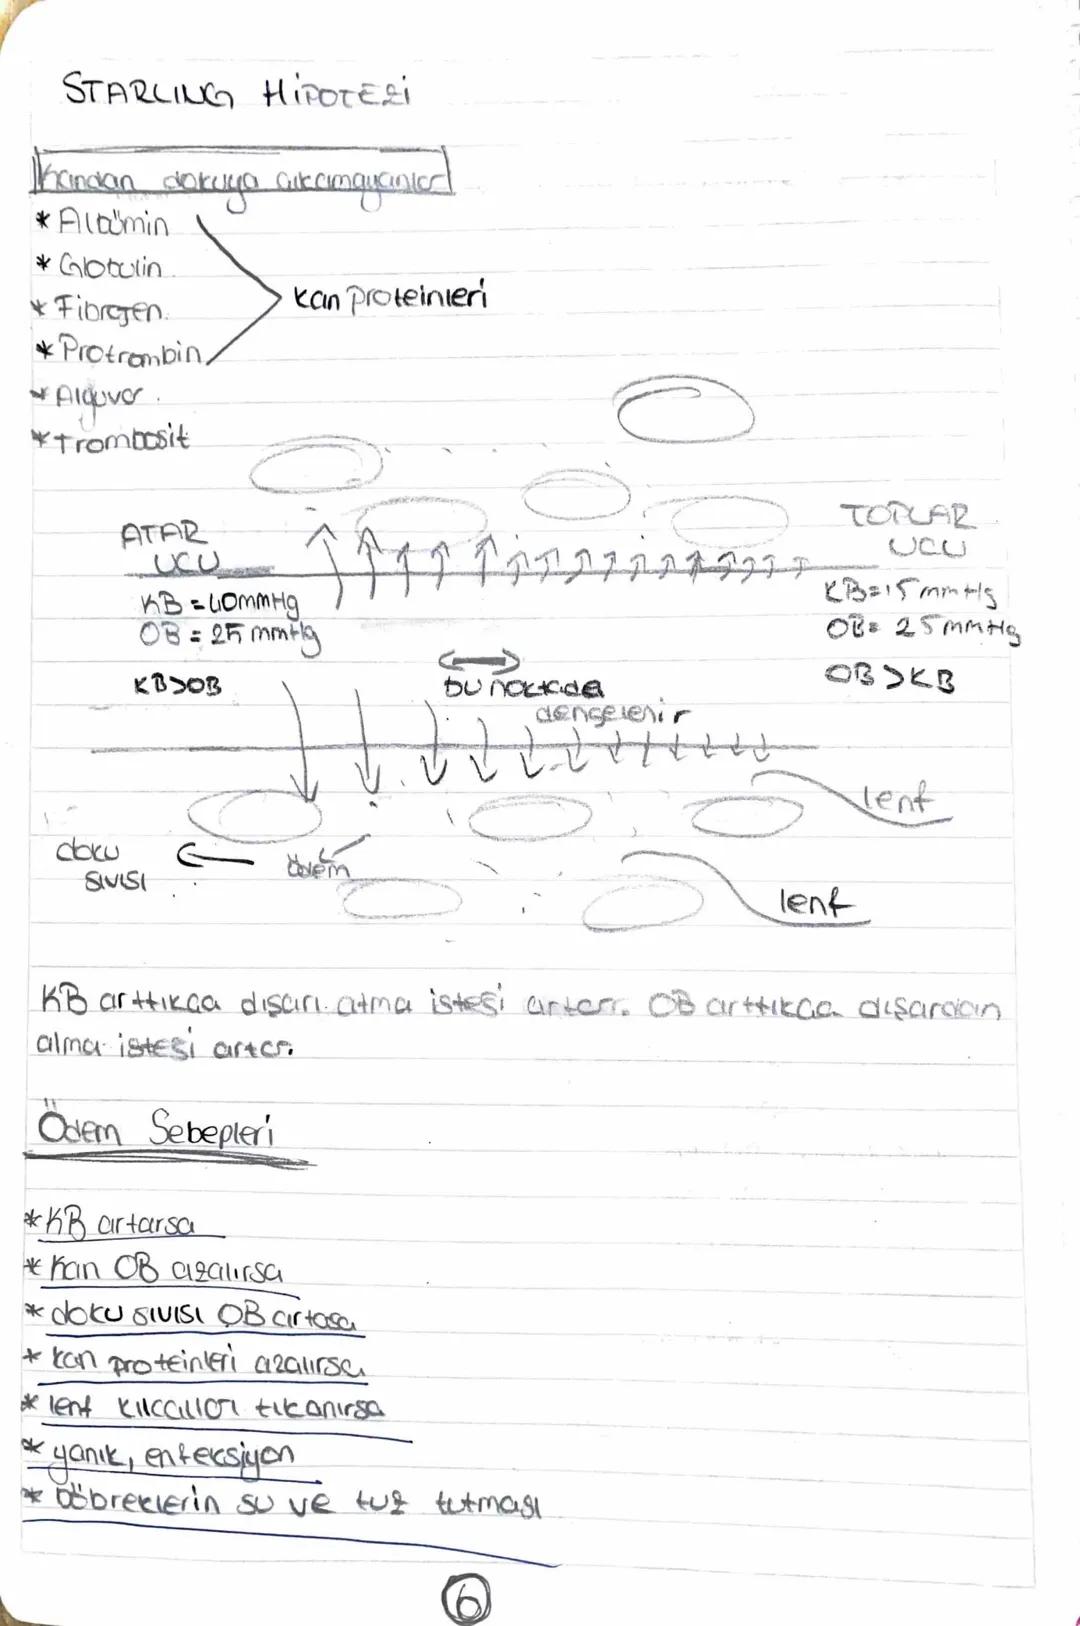 STARLING HİPOTEZİ
Kandan dokuya çıkamayanlar
* Albümin
* Globulin
* Fibrojen
* Protrombin
kan proteinleri
* Alyuvar
* Trombosit
ATAR
UCU
KB = 40mmHg
OB = 25 mmHg
KB>OB
TOPLAR
UCU
KB=15 mmHg
OB= 25 mmHg
OB >KB
bu noktada
dengelenir
lenf
doku
sıvısı
ödem
lenf
KB arttıkça dışarı atma isteği artar. OB arttıkça dışardan
alma isteği artar.
Ödem Sebepleri
* KB artarsa
* Kan OB azalırsa
* doku sıvısı OB artasa
* kan proteinleri azalırsa
* lenf kılcalları tıkanırsa
* yanık, enfeksiyon
* böbreklerin su ve tuz tutması
6